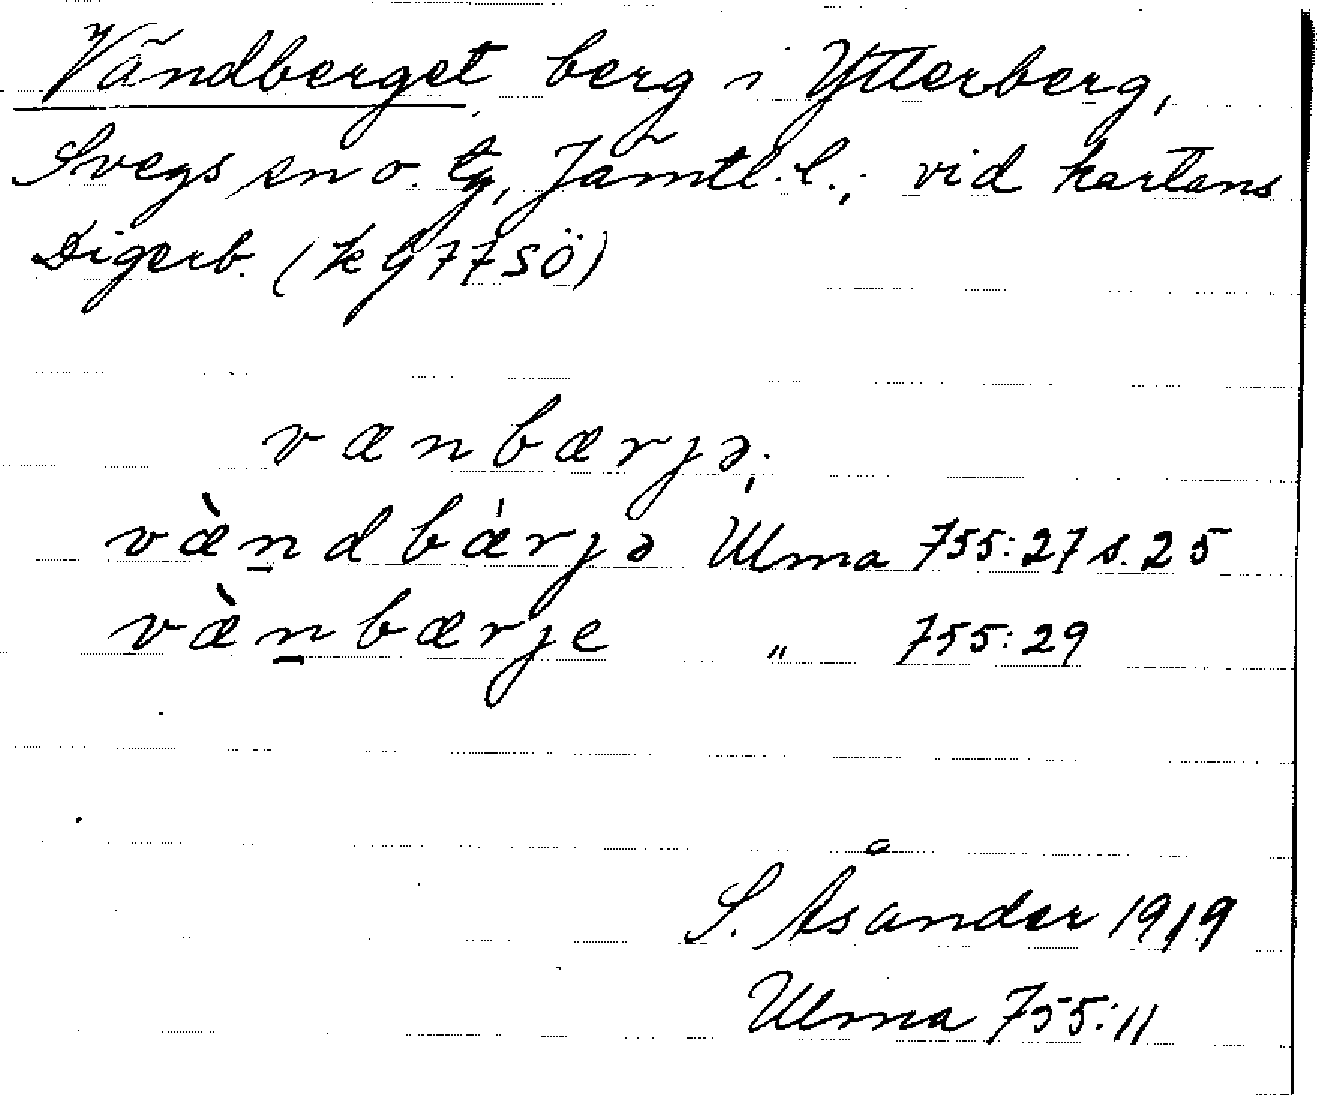 Vändberget berg i Ytterberg,
Svegs sn o. tg, Jämtl. l., vid kartans
Digerb. (k g 77 SÖ)
vænbærjə,
væ̀ṉdbæ̀rjə Ulma 755:27 s. 25
væ̀ṉbærje " 755:29
S. Åsander 1919
Ulma 755:11